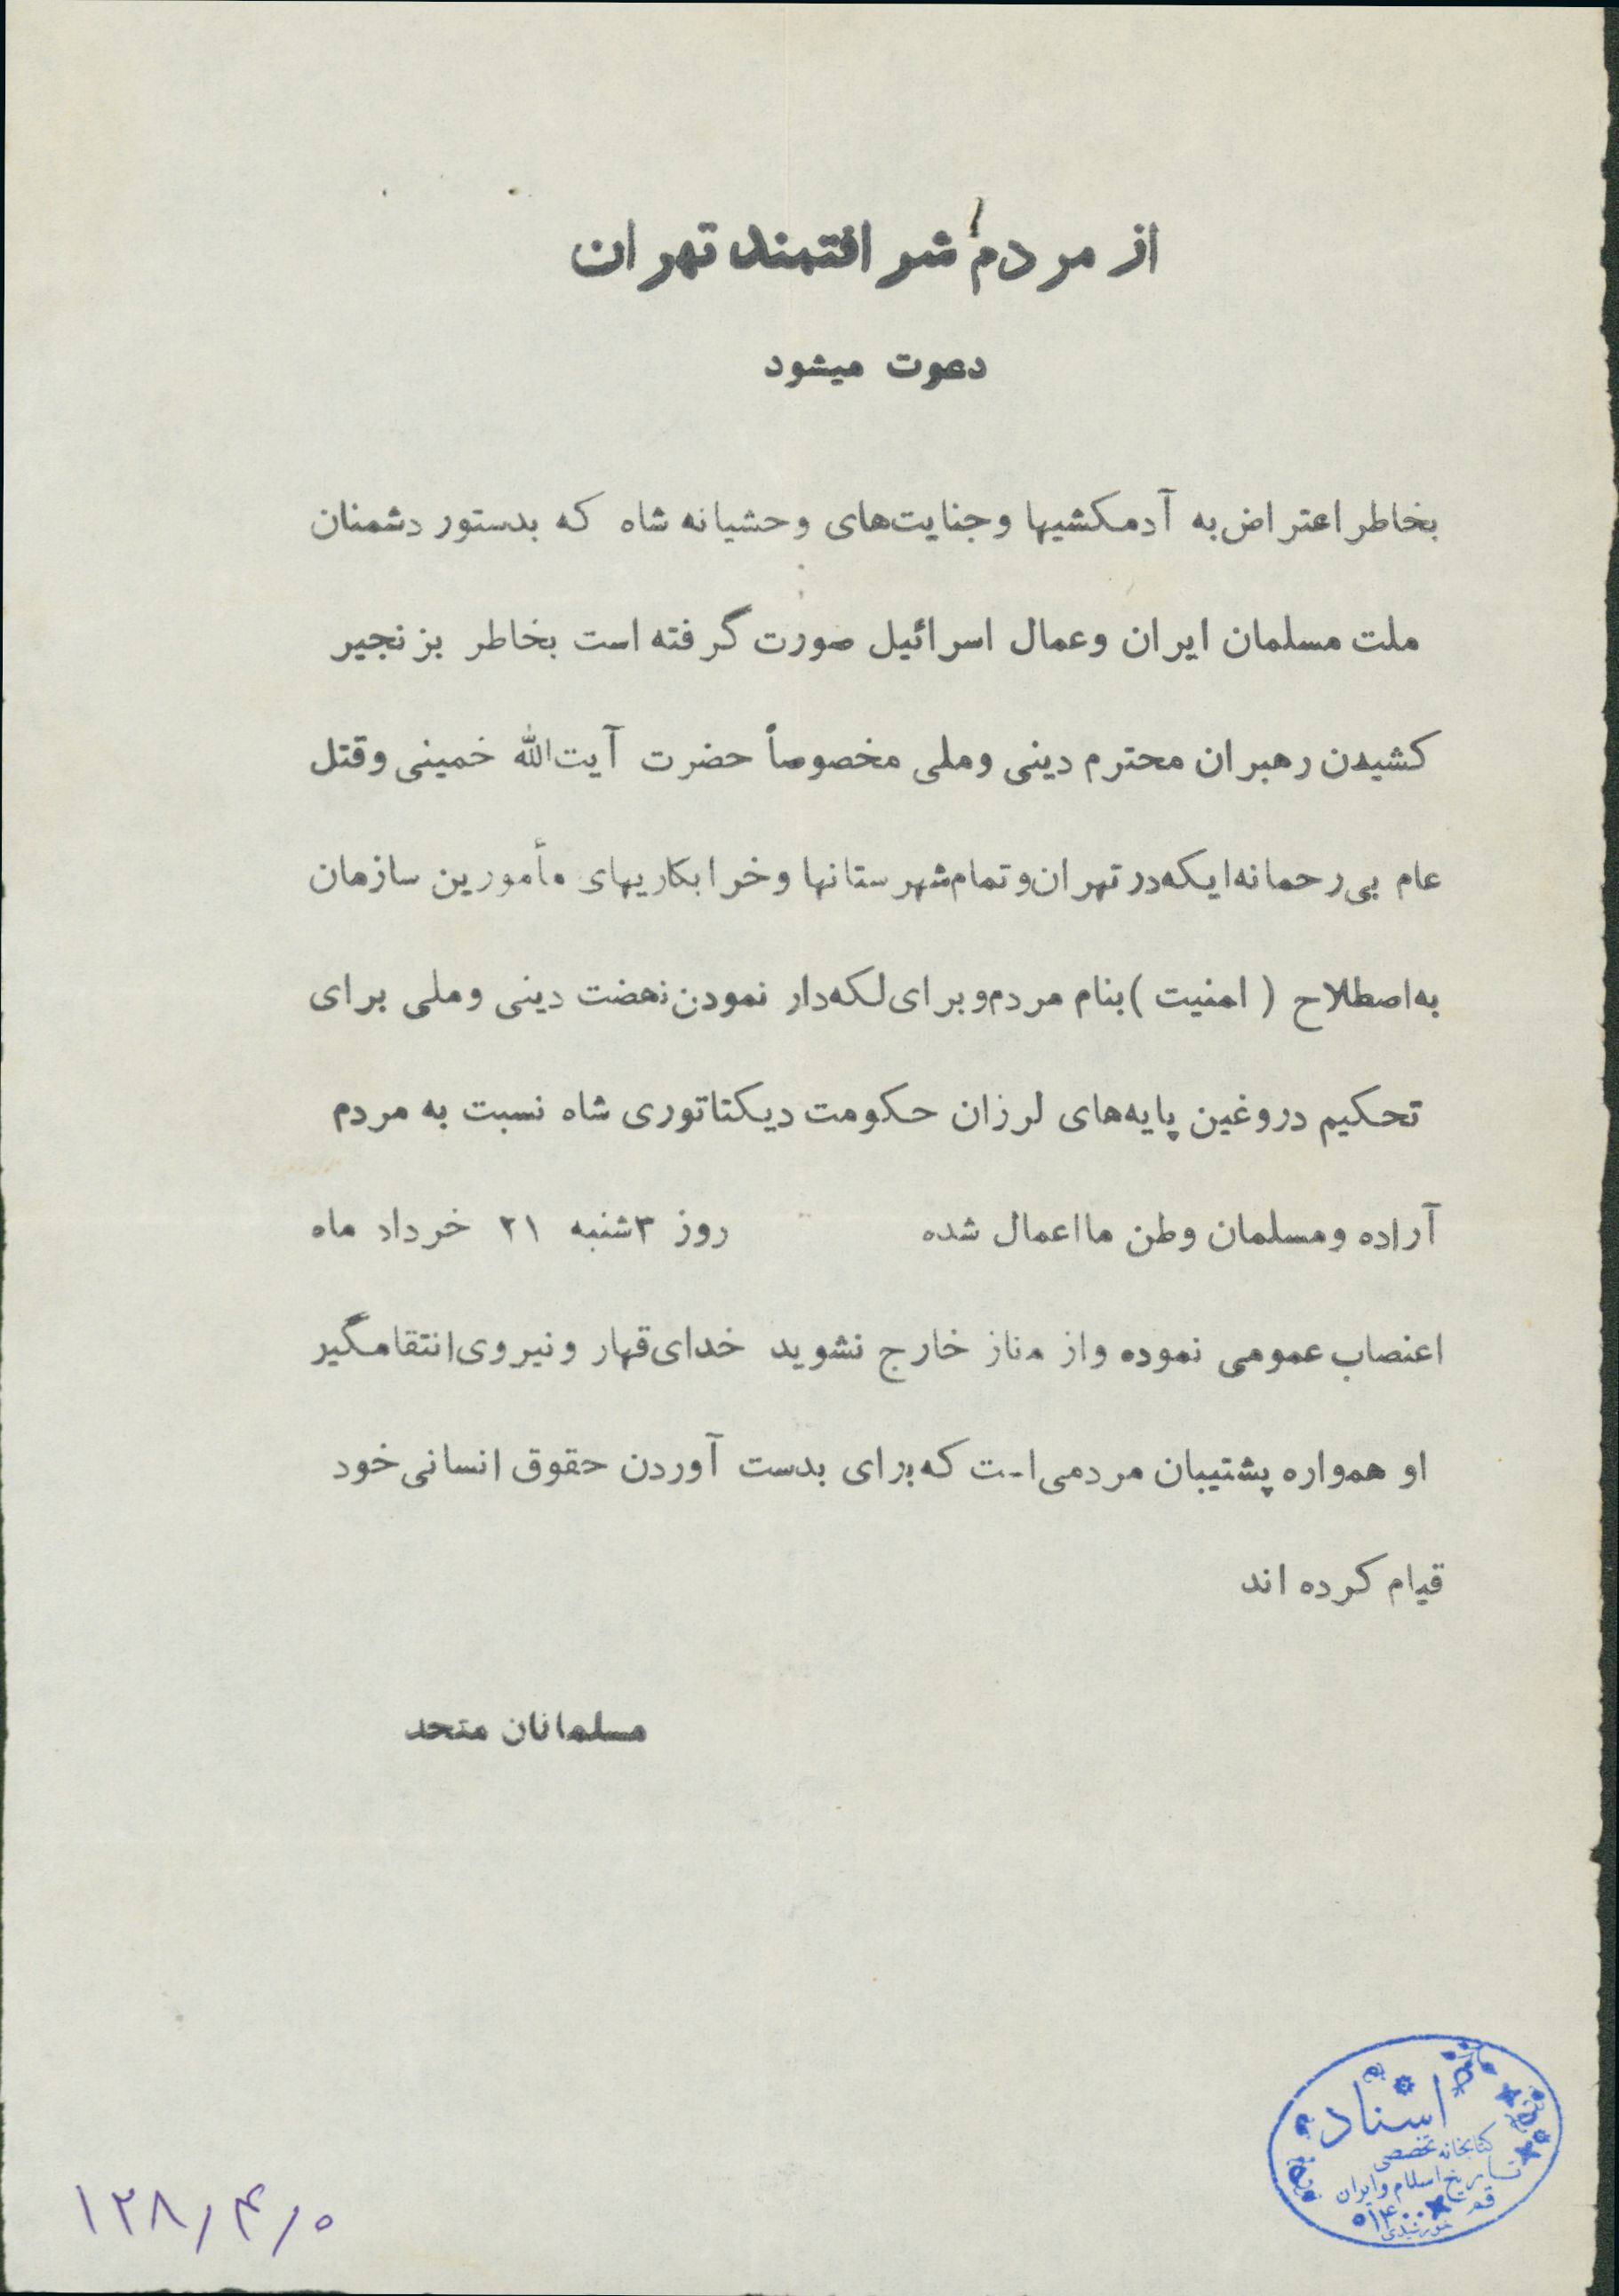 از مردم شرافتمند تهران
دعوت میشود
بخاطر اعتراض به آدمکشیها و جنایت‌های وحشیانه شاه که بدستور دشمنان
ملت مسلمان ایران وعمال اسرائیل صورت گرفته است بخاطر بزنجیر
کشیدن رهبران محترم دینی وملی مخصوصاً حضرت آیت‌الله خمینی وقتل
عام بی‌رحمانه‌ایکه‌در تهران‌وتمام‌شهرستانها وخرابکاریهای مأمورین سازمان
به‌اصطلاح ( امنیت ) بنام مردم‌وبرای‌لکه‌دار نمودن‌نهضت دینی وملی برای
تحکیم دروغین پایه‌های لرزان حکومت دیکتاتوری شاه نسبت به مردم
آراده ومسلمان وطن مااعمال شده روز ۳شنبه ۲۱ خرداد ماه
اعتصاب عمومی نموده واز مناز خارج نشوید خدای‌قهار ونیروی‌انتقامگیر
او همواره پشتیبان مردمی‌است که‌برای بدست آوردن حقوق انسانی‌خود
قیام کرده اند
مسلمانان متحد
اسناد
کتابخانه تخصصی
تاریخ اسلام و ایران
قم
۱۲۸/۴/۰